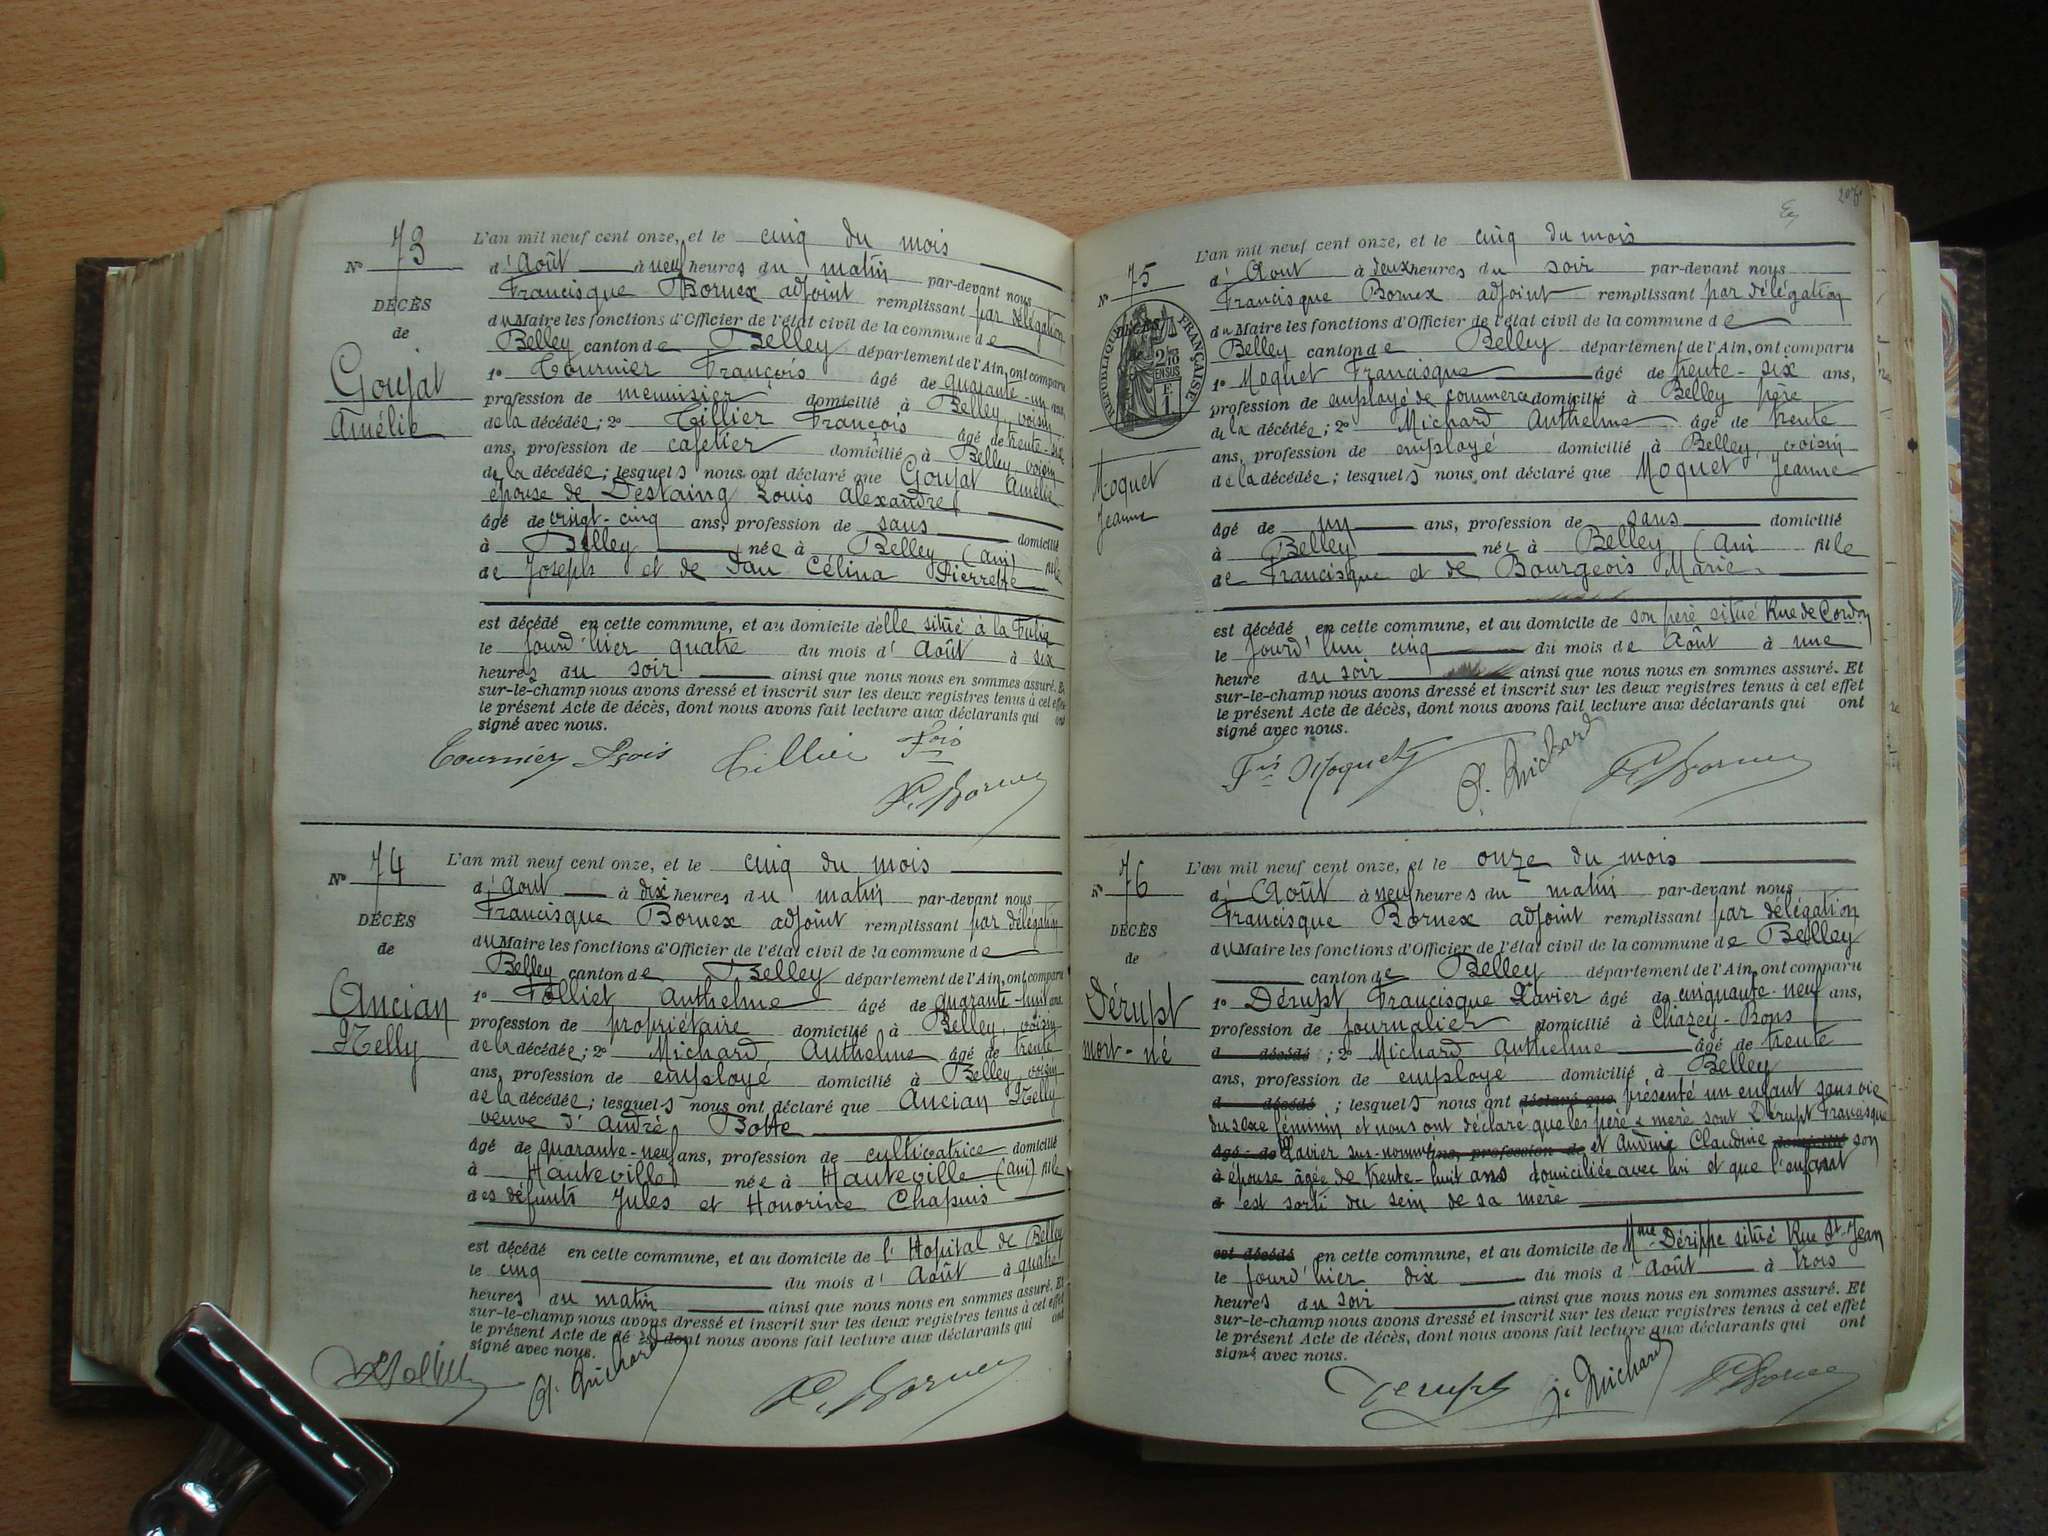 N° 73
DÉCÈS
de
Goujat
Amélie
L'an mil neuf cent onze, et le cinq du mois
d'Août à neuf heures du matin par-devant nous
Francisque Bornex adjoint remplissant par délégation
du Maire les fonctions d'Officier de l'état civil de la commune de
Belley canton de Belley département de l'Ain, ont comparu
1° Tournier François âgé de quarante-un ans,
profession de menuisier domicilié à Belley, voisin
de la décédée; 2° Tillier François âgé de trente-six
ans, profession de cafetier domicilié à Belley, voisin
de la décédée; lesquels nous ont déclaré que Goujat Amélie
épouse de Destaing Louis Alexandre
âgé de vingt-cinq ans, profession de sans domicilié
à Belley née à Belley (Ain) fille
de Joseph et de Dau Célina Pierrette
est décédé en cette commune, et au domicile delle situé à la
le jourd'hier quatre du mois d'Août à six
heures du soir ainsi que nous nous en sommes assuré. Et
sur-le-champ nous avons dressé et inscrit sur les deux registres tenus à cet effet
le présent Acte de décès, dont nous avons fait lecture aux déclarants qui ont
signé avec nous.
Tournier Fçois Tillier Fçois
F. Bornex
N° 74
DÉCÈS
de
Ancian
Nelly
L'an mil neuf cent onze, et le cinq du mois
d'Août à dix heures du matin par-devant nous
Francisque Bornex adjoint remplissant par délégation
du Maire les fonctions d'Officier de l'état civil de la commune de
Belley canton de Belley département de l'Ain, ont comparu
1° Folliet Anthelme âgé de quarante-huit ans
profession de propriétaire domicilié à Belley, voisin
de la décédée; 2° Michard Anthelme âgé de trente
ans, profession de employé domicilié à Belley, voisin
de la décédée; lesquels nous ont déclaré que Ancian Nelly
veuve d'André Botte
âgé de quarante-neuf ans, profession de cultivatrice domicilié
à Hauteville née à Hauteville (Ain) fille
des défunts Jules et Honorine Chapuis
est décédé en cette commune, et au domicile de l'Hopital de Belley
le cinq du mois d'Août à quatre
heures du matin ainsi que nous nous en sommes assuré. Et
sur-le-champ nous avons dressé et inscrit sur les deux registres tenus à cet effet
le présent Acte de décès, dont nous avons fait lecture aux déclarants qui ont
signé avec nous.
A. Michard F. Bornex
N° 75
DÉCÈS
RÉPUBLIQUE FRANÇAISE
2/10 EN SUS
Moquet
Jeanne
L'an mil neuf cent onze, et le cinq du mois
d'Aout à deux heures du soir par-devant nous
Francisque Bornex adjoint remplissant par délégation
du Maire les fonctions d'Officier de l'état civil de la commune de
Belley canton de Belley département de l'Ain, ont comparu
1° Moquet Francisque âgé de trente-six ans,
profession de employé de commerce domicilié à Belley père
de la décédée; 2° Michard Anthelme âgé de trente
ans, profession de employé domicilié à Belley, voisin
de la décédée; lesquels nous ont déclaré que Moquet Jeanne
âgé de un ans, profession de sans domicilié
à Belley née à Belley (Ain fille
de Francisque et de Bourgeois Marie
est décédé en cette commune, et au domicile de son père situé Rue de Cordon
le jourd'hui cinq du mois de Août à une
heure du soir ainsi que nous nous en sommes assuré. Et
sur-le-champ nous avons dressé et inscrit sur les deux registres tenus à cet effet
le présent Acte de décès, dont nous avons fait lecture aux déclarants qui ont
signé avec nous.
Fis Moquet A. Michard F. Bornex
N° 76
DÉCÈS
de
Dérupt
mort-né
L'an mil neuf cent onze, et le onze du mois
d'Août à neuf heures du matin par-devant nous
Francisque Bornex adjoint remplissant par délégation
du Maire les fonctions d'Officier de l'état civil de la commune de Belley
canton de Belley département de l'Ain, ont comparu
1° Dérupt Francisque Xavier âgé de cinquante-neuf ans,
profession de journalier domicilié à Chazey-Bons
d décédé; 2° Michard Anthelme âgé de trente
ans, profession de employé domicilié à Belley
d décédé; lesquels nous ont déclaré que présenté un enfant sans vie
du sexe féminin et nous ont déclaré que les père & mère sont Dérupt Francisque
âgé de Xavier sus-nommé ans, profession de et Claudine domicilié son
à épouse âgée de trente-huit ans domiciliée avec lui et que l'enfant
d est sorti du sein de sa mère
est décédé en cette commune, et au domicile de Mme Dérippe situé Rue St-Jean
le jourd'hier dix du mois d'Août à trois
heures du soir ainsi que nous nous en sommes assuré. Et
sur-le-champ nous avons dressé et inscrit sur les deux registres tenus à cet effet
le présent Acte de décès, dont nous avons fait lecture aux déclarants qui ont
signé avec nous.
Derupt A. Michard F. Bornex